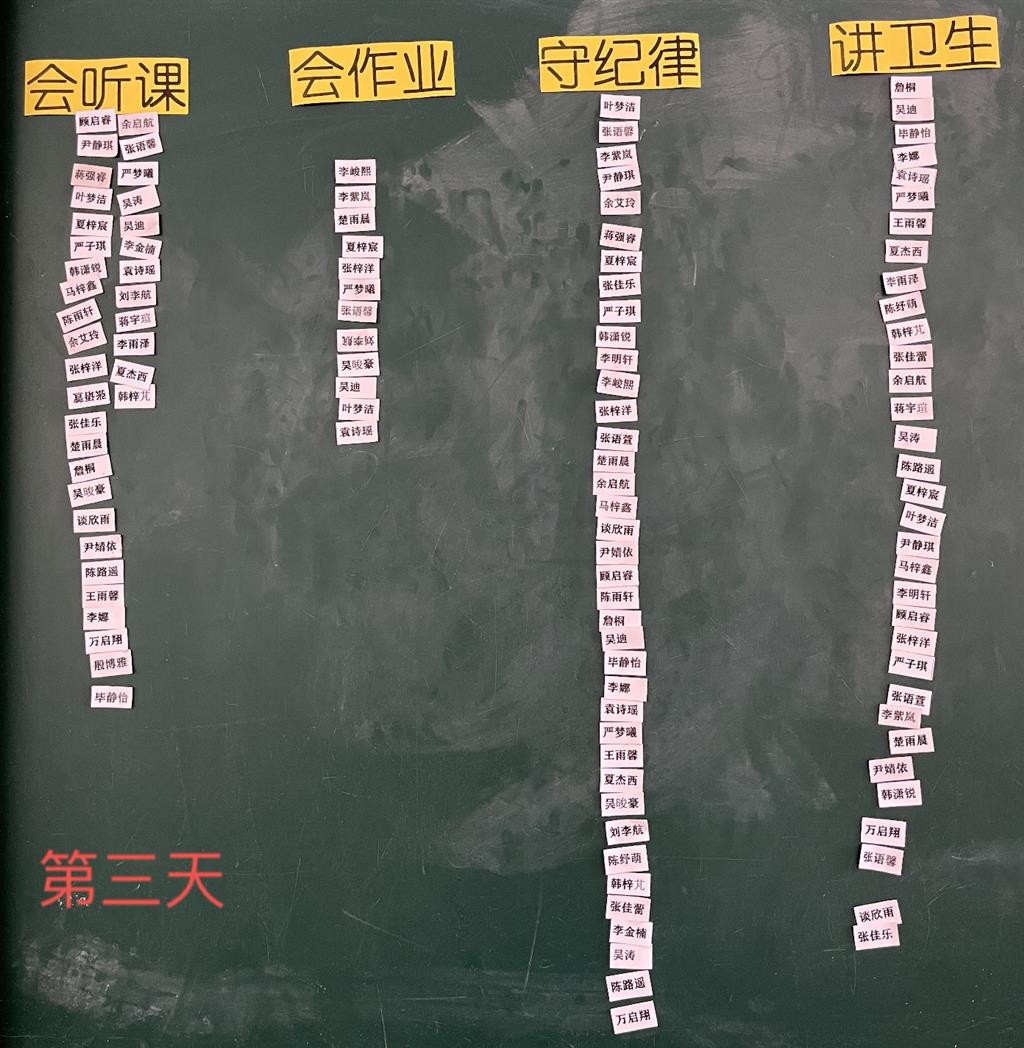 会听课
顾启睿 余启航
尹静琪 张语馨
蒋强睿 严梦曦
叶梦洁 吴涛
夏梓宸 吴迪
严子琪 李金楠
韩潇锐 袁诗瑶
马梓鑫 刘李航
陈雨轩 蒋宇瑄
余艾玲 李雨泽
张梓洋 夏杰西
韩梓芃
张佳乐
楚雨晨
詹桐
吴晙豪
谈欣雨
尹婧依
陈路遥
王雨馨
李娜
万启翔
殷博雅
毕静怡
会作业
李峻熙
李紫岚
楚雨晨
夏梓宸
张梓洋
严梦曦
张语馨
刘李航
吴晙豪
吴迪
叶梦洁
袁诗瑶
守纪律
叶梦洁
张语馨
李紫岚
尹静琪
余艾玲
蒋强睿
夏梓宸
张佳乐
严子琪
韩潇锐
李明轩
李峻熙
张梓洋
张语萱
楚雨晨
余启航
马梓鑫
谈欣雨
尹婧依
顾启睿
陈雨轩
詹桐
吴迪
毕静怡
李娜
袁诗瑶
严梦曦
王雨馨
夏杰西
吴晙豪
刘李航
陈纾萌
韩梓芃
张佳蕾
李金楠
吴涛
陈路遥
万启翔
讲卫生
詹桐
吴迪
毕静怡
李娜
袁诗瑶
严梦曦
王雨馨
夏杰西
李雨泽
陈纾萌
韩梓芃
张佳蕾
余启航
蒋宇瑄
吴涛
陈路遥
夏梓宸
叶梦洁
尹静琪
马梓鑫
李明轩
顾启睿
张梓洋
严子琪
张语萱
李紫岚
楚雨晨
尹婧依
韩潇锐
万启翔
张语馨
谈欣雨
张佳乐
第三天